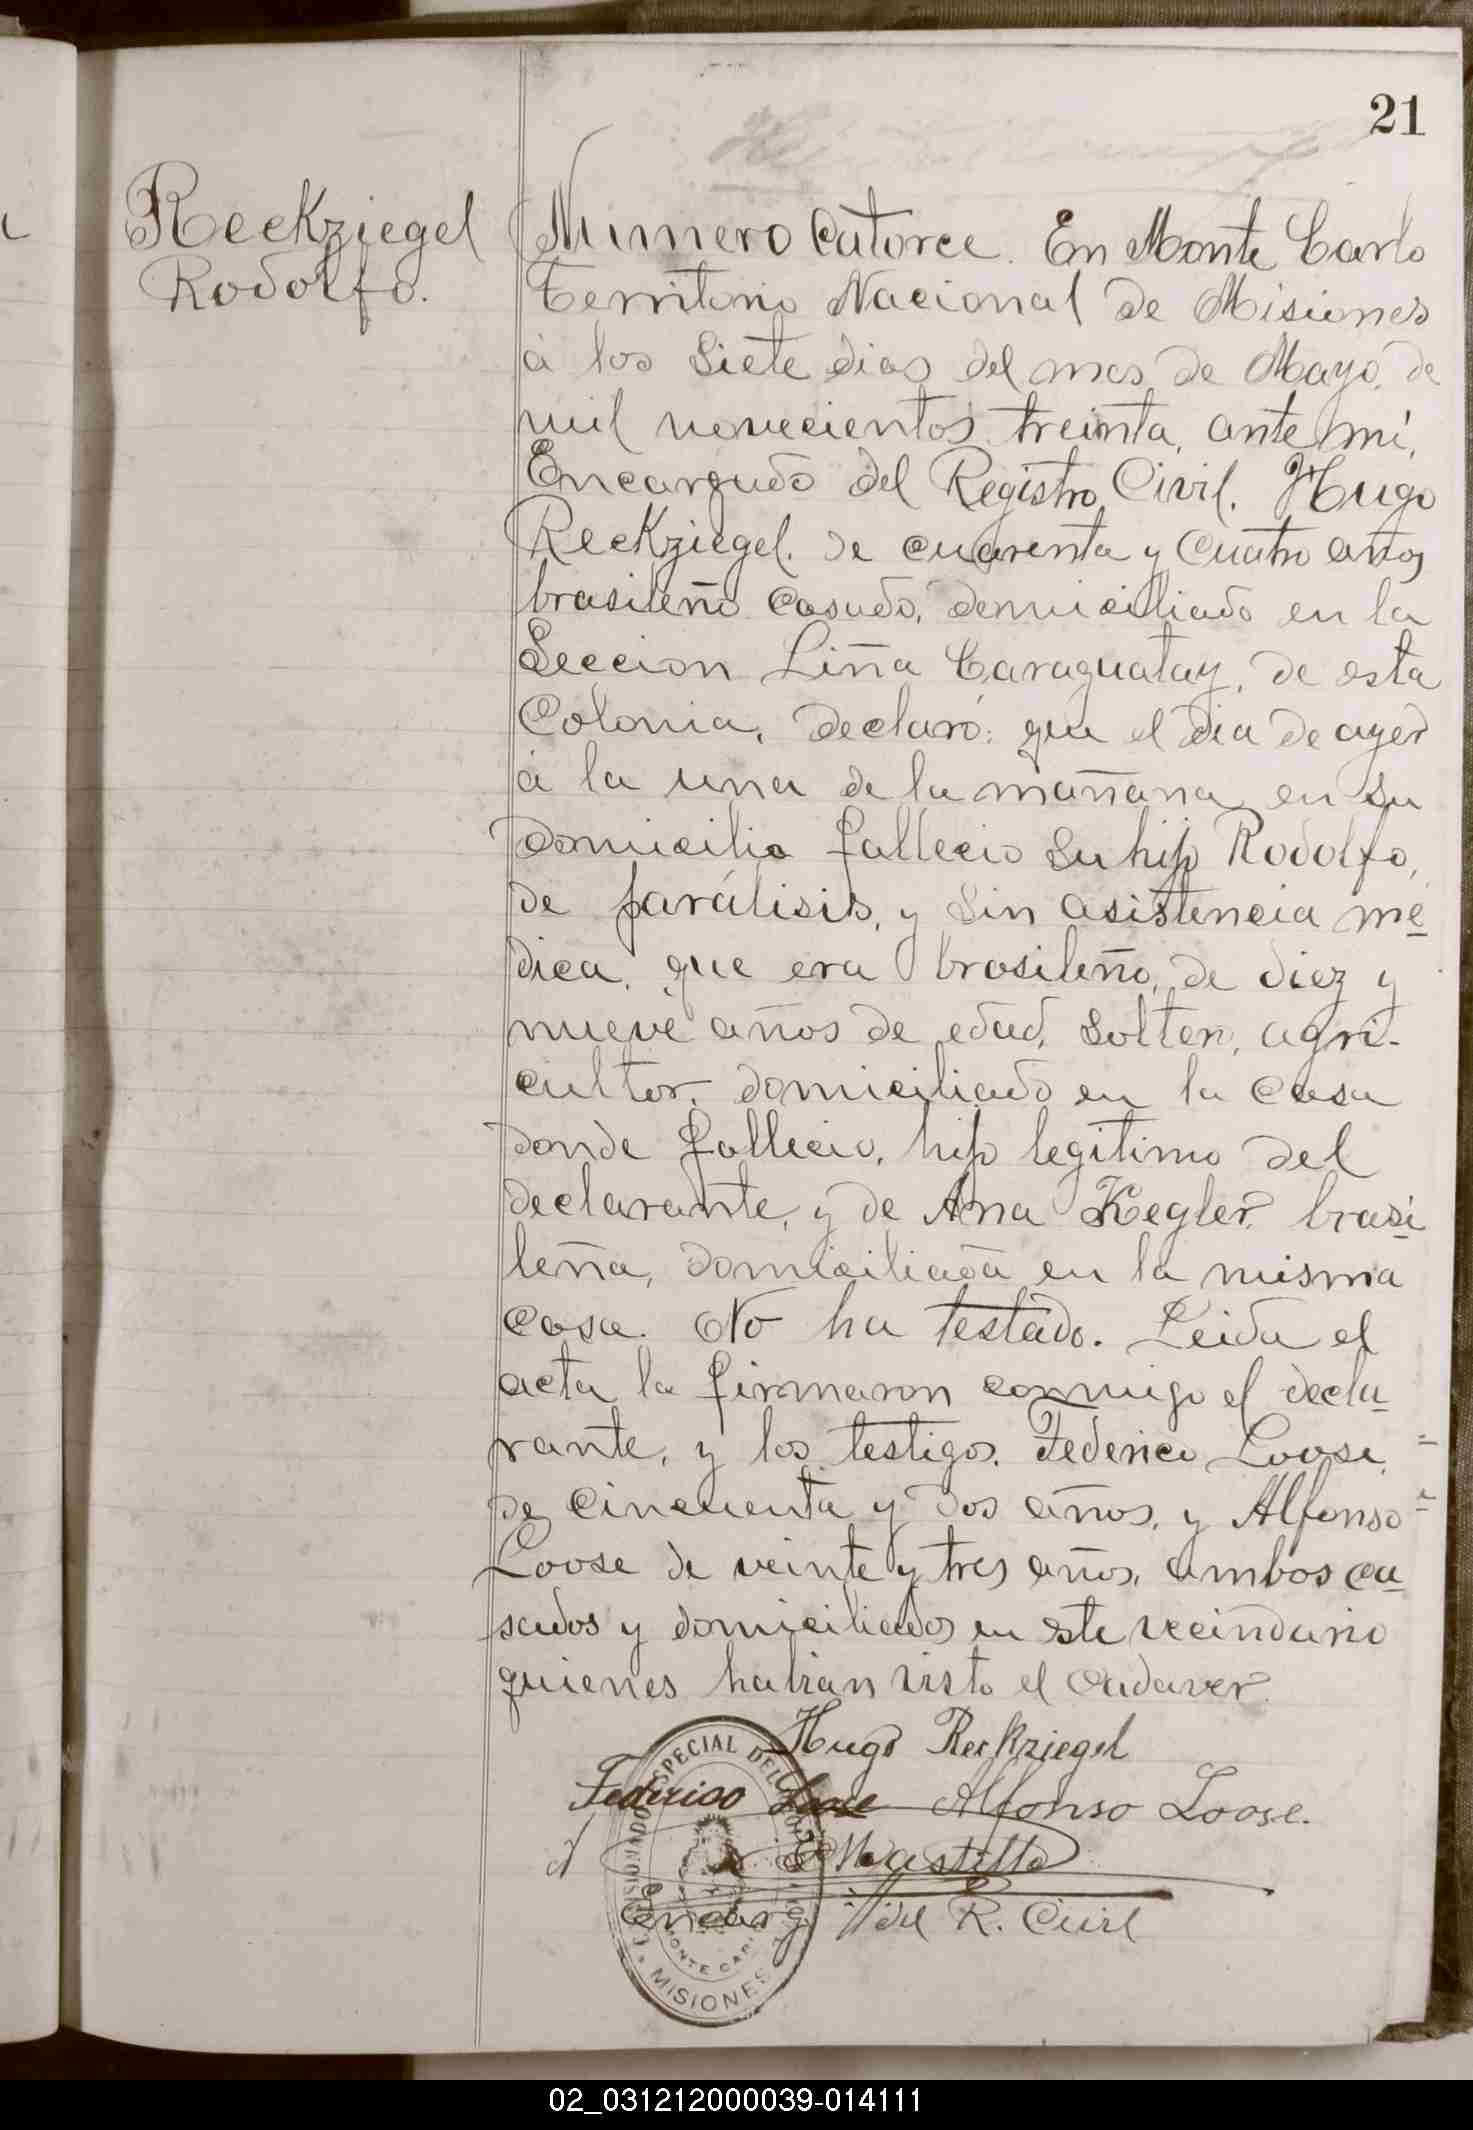 21
Reckziegel
Rodolfo.
Numero Catorce. En Monte Carlo
Territorio Nacional de Misiones
á los siete dias del mes de Mayo, de
mil novecientos treinta, ante mi,
Encargado del Registro Civil. Hugo
Reckziegel, de cuarenta y cuatro años
brasileño casado, domiciliado en la
Seccion Liña Caraguatay, de esta
Colonia, declaró: que el dia de ayer
á la una de la mañana en su
domicilio fallecio su hijo Rodolfo,
de parálisis, y sin asistencia me
dica, que era brasileño, de diez y
nueve años de edad, soltero, agri-
cultor, domiciliado en la casa
donde fallecio, hijo legitimo del
declarante, y de Ana Kegler, brasi
leña, domiciliada en la misma
casa. No ha testado. Leida el
acta la firmaron conmigo el decla
rante, y los testigos, Federico Loose,
de cincuenta y dos años, y Alfonso
Loose de veinte y tres años, ambos ca
sados y domiciliados en este vecindario
quienes habian visto el cadaver.
Hugo Reckziegel
Federico Loose Alfonso Loose.
Encarg del R. Civil
COMISIONADO ESPECIAL DEL
MONTE CARLO
MISIONES
02_031212000039-014111